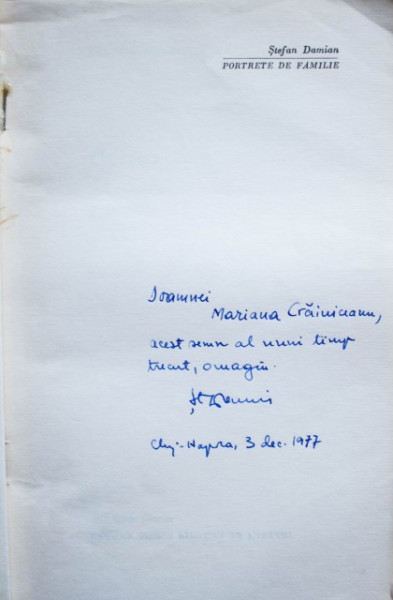 Ștefan Damian
PORTRETE DE FAMILIE
Doamnei
Mariana Crăiniceanu,
acest semn al unui timp
trecut, omagiu.
Cluj-Napoca, 3 dec. 1977